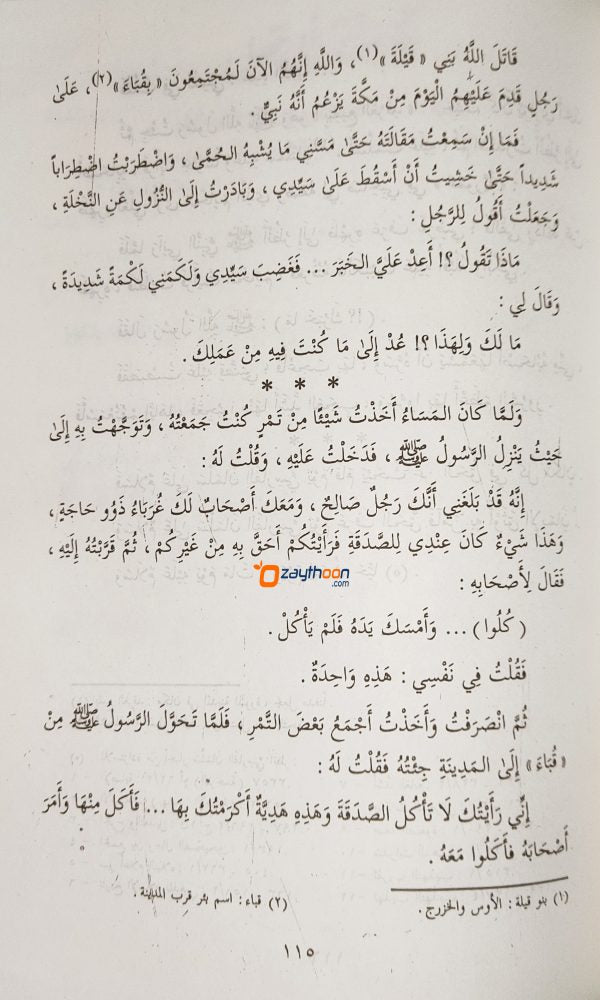 قَاتَلَ اللَّهُ بَنِي « قَيْلَةَ »(١)، وَاللَّهِ إِنَّهُمُ الآنَ لَمُجْتَمِعُونَ « بِقُبَاءَ »(٢)، عَلَىٰ
رَجُلٍ قَدِمَ عَلَيْهِمُ الْيَوْمَ مِنْ مَكَّةَ يَزْعُمُ أَنَّهُ نَبِيٌّ .
فَمَا إِنْ سَمِعْتُ مَقَالَتَهُ حَتَّىٰ مَسَّنِي مَا يُشْبِهُ الْحُمَّىٰ ، وَاضْطَرَبْتُ اضْطِرَاباً
شَدِيداً حَتَّىٰ خَشِيتُ أَنْ أَسْقُطَ عَلَىٰ سَيِّدِي ، وَبَادَرْتُ إِلَىٰ النُّزُولِ عَنِ النَّخْلَةِ ،
وَجَعَلْتُ أَقُولُ لِلرَّجُلِ :
مَاذَا تَقُولُ ؟! أَعِدْ عَلَيَّ الْخَبَرَ ... فَغَضِبَ سَيِّدِي وَلَكَمَنِي لَكْمَةً شَدِيدَةً ،
وَقَالَ لِي :
مَا لَكَ وَلِهَذَا ؟! عُدْ إِلَىٰ مَا كُنْتَ فِيهِ مِنْ عَمَلِكَ .
* * *
وَلَمَّا كَانَ الْمَسَاءُ أَخَذْتُ شَيْئًا مِنْ تَمْرٍ كُنْتُ جَمَعْتُهُ ، وَتَوَجَّهْتُ بِهِ إِلَىٰ
حَيْثُ يَنْزِلُ الرَّسُولُ ﷺ ، فَدَخَلْتُ عَلَيْهِ ، وَقُلْتُ لَهُ :
إِنَّهُ قَدْ بَلَغَنِي أَنَّكَ رَجُلٌ صَالِحٌ ، وَمَعَكَ أَصْحَابٌ لَكَ غُرَبَاءُ ذَوُو حَاجَةٍ ،
وَهَذَا شَيْءٌ كَانَ عِنْدِي لِلصَّدَقَةِ فَرَأَيْتُكُمْ أَحَقَّ بِهِ مِنْ غَيْرِكُمْ ، ثُمَّ قَرَّبْتُهُ إِلَيْهِ ،
فَقَالَ لِأَصْحَابِهِ :
zaythoon.com
( كُلُوا ) ... وَأَمْسَكَ يَدَهُ فَلَمْ يَأْكُلْ .
فَقُلْتُ فِي نَفْسِي : هَذِهِ وَاحِدَةٌ .
ثُمَّ انْصَرَفْتُ وَأَخَذْتُ أَجْمَعُ بَعْضَ التَّمْرِ ، فَلَمَّا تَحَوَّلَ الرَّسُولُ ﷺ مِنْ
« قُبَاءَ » إِلَىٰ المَدِينَةِ جِئْتُهُ فَقُلْتُ لَهُ :
إِنِّي رَأَيْتُكَ لَا تَأْكُلُ الصَّدَقَةَ وَهَذِهِ هَدِيَّةٌ أَكْرَمْتُكَ بِهَا ... فَأَكَلَ مِنْهَا وَأَمَرَ
أَصْحَابَهُ فَأَكَلُوا مَعَهُ .
(١) بنو قيلة : الأوس والخزرج .
(٢) قباء : اسم بئر قرب المدينة .
١١٥